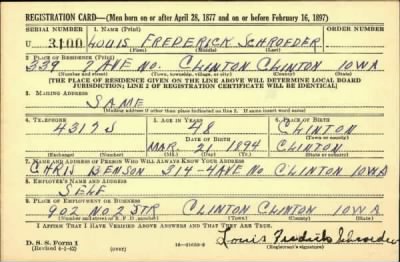 REGISTRATION CARD—(Men born on or after April 28, 1877 and on or before February 16, 1897)
SERIAL NUMBER 1. NAME (Print) ORDER NUMBER
U 3100 LOUIS FREDERICK SCHROEDER
(First) (Middle) (Last)
2. PLACE OF RESIDENCE (Print)
339 2 AVE NO. CLINTON CLINTON IOWA
(Number and street) (Town, township, village, or city) (County) (State)
[THE PLACE OF RESIDENCE GIVEN ON THE LINE ABOVE WILL DETERMINE LOCAL BOARD
JURISDICTION; LINE 2 OF REGISTRATION CERTIFICATE WILL BE IDENTICAL]
3. MAILING ADDRESS
SAME
[Mailing address if other than place indicated on line 2. If same insert word same]
4. TELEPHONE 5. AGE IN YEARS 6. PLACE OF BIRTH
4317 J 48 CLINTON
DATE OF BIRTH (Town or county)
MAR. 21 1894 CLINTON
(Exchange) (Number) (Mo.) (Day) (Yr.) (State or country)
7. NAME AND ADDRESS OF PERSON WHO WILL ALWAYS KNOW YOUR ADDRESS
CHRIS BENSON 314-4 AVE NO CLINTON IOWA
8. EMPLOYER'S NAME AND ADDRESS
SELF
9. PLACE OF EMPLOYMENT OR BUSINESS
902 NO 2 STR CLINTON CLINTON IOWA
(Number and street or R. F. D. number) (Town) (County) (State)
I AFFIRM THAT I HAVE VERIFIED ABOVE ANSWERS AND THAT THEY ARE TRUE.
D. S. S. Form 1
(Revised 4-1-42) (over) Louis Fredrick Schroeder
(Registrant's signature)